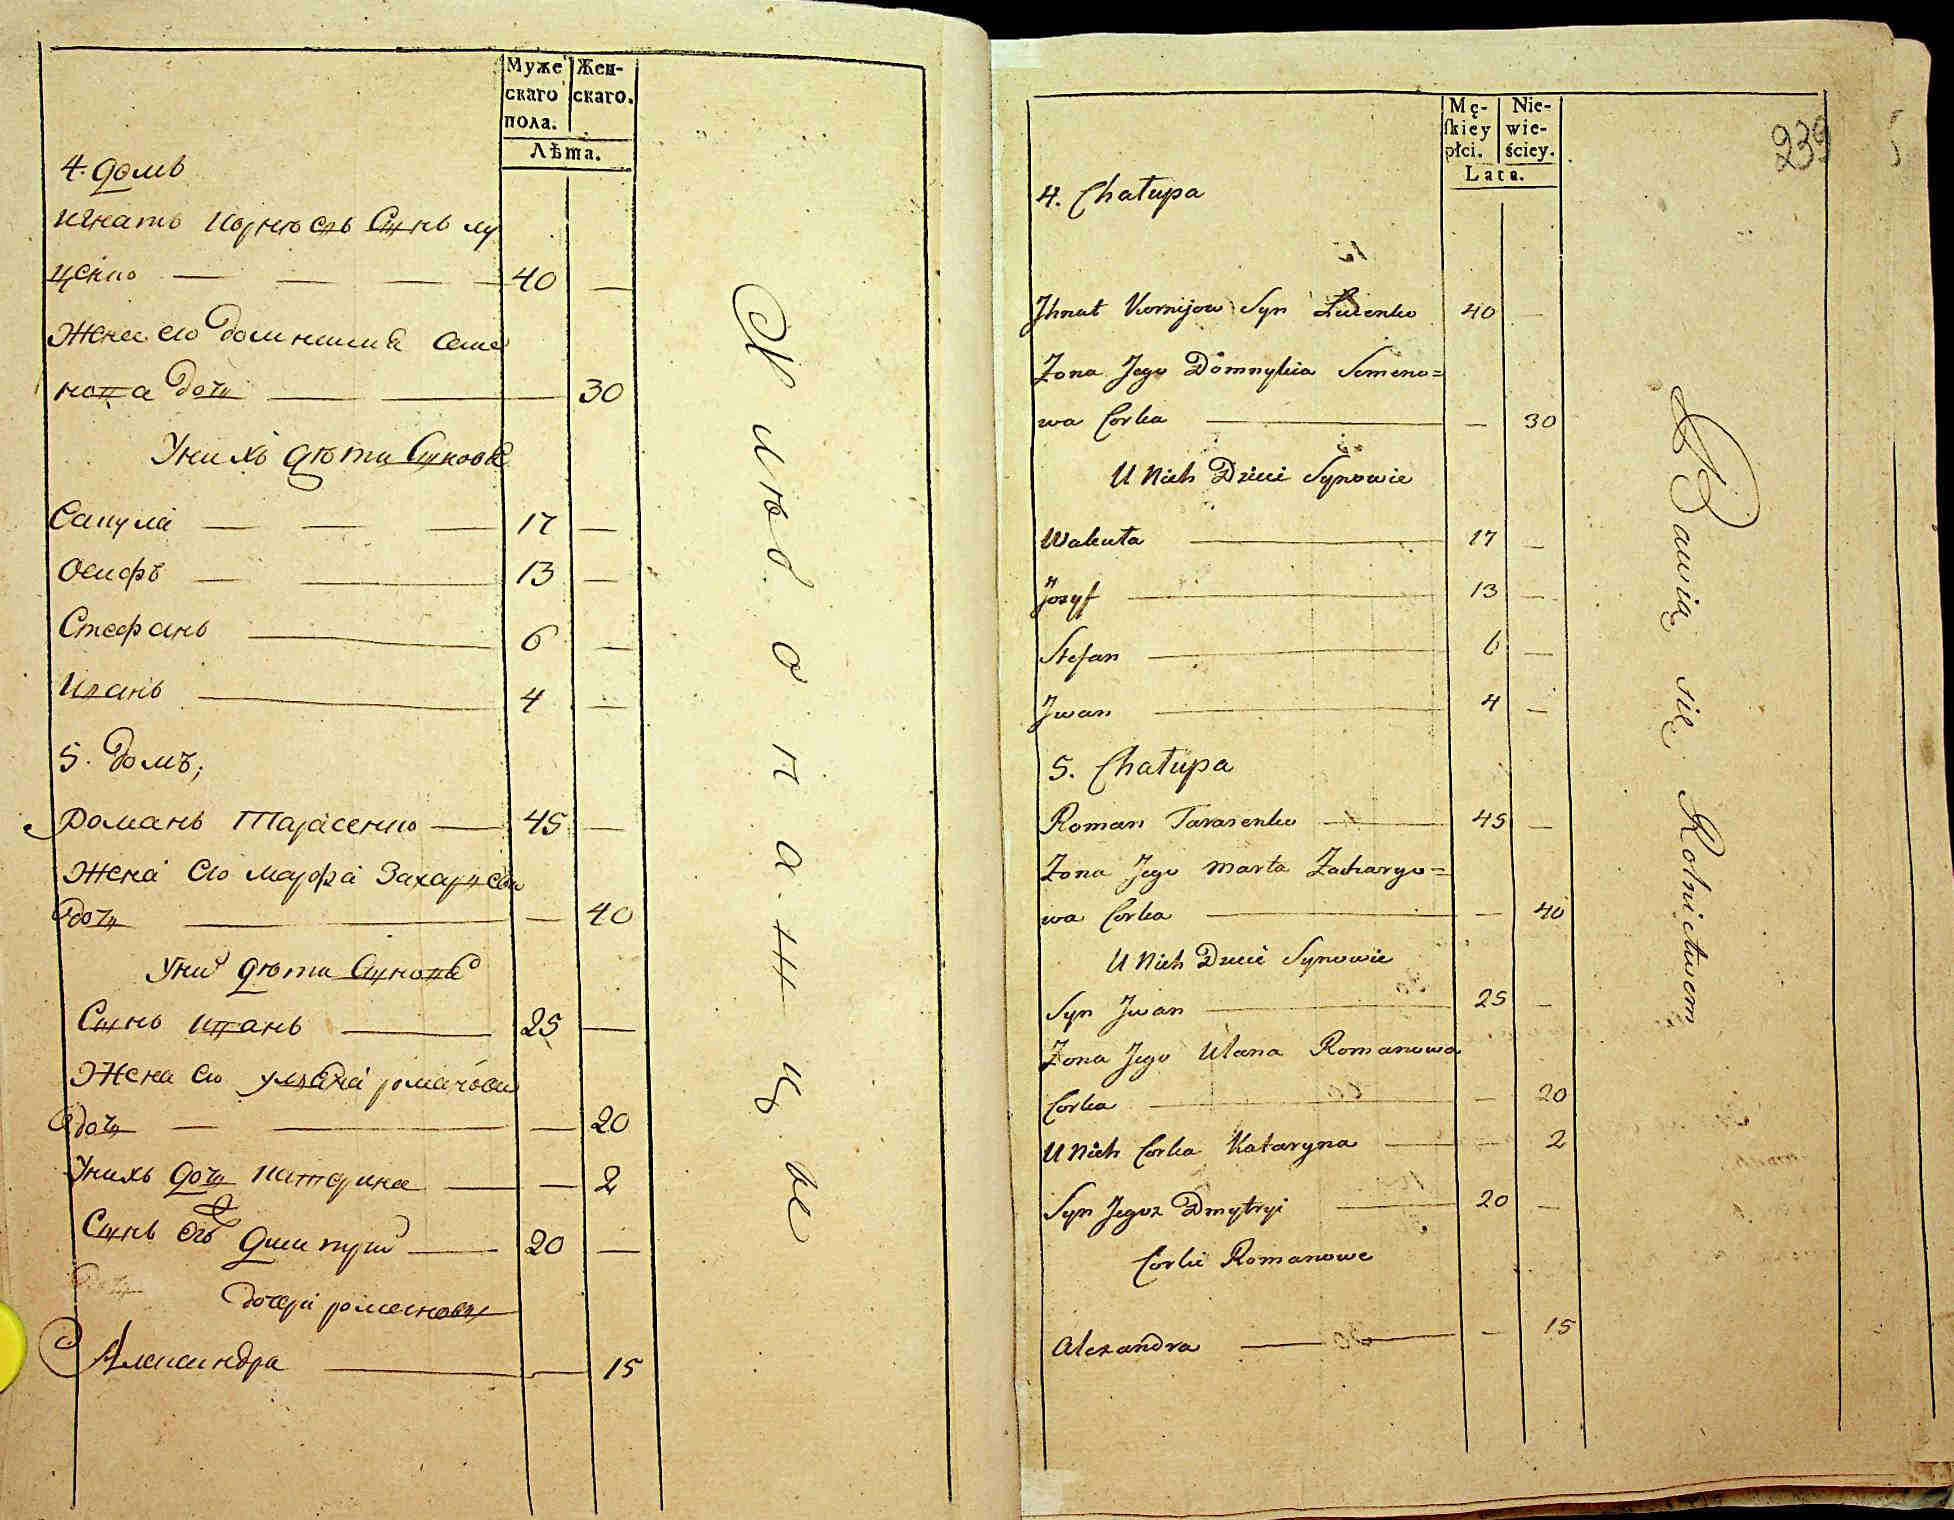 Муже
скаго
пола.
Жен-
скаго.
Лѣта.
4. домъ
Игнатъ Корнѣевъ Сынъ Лу
ценко — — — — 40 —
Жена его Домникия Семе
нова дочь — — — 30
У нихъ дѣти Сыновѣ
Вакула — — — 17 —
Осифъ — — 13 —
Стефанъ — 6 —
Иванъ — 4 —
5. Домъ;
Романъ Тарасенко — 45 —
Жена его Марфа Захарцева
дочь — — 40
У них дѣти Сыновѣ
Сынъ Иванъ — 25 —
Жена его Уляна романова
дочь — — — 20
У нихъ дочь Катерина — — 2
Сынъ его Дмитрий — 20 —
дочери романовы
Александра — — 15
Хлѣбопашцы
239
5
Mę-
skiey
płci.
Nie-
wie-
ściey.
Lata.
4. Chałupa
Jhnat Kornijow Syn Łucenko 40 —
Żona Jego Domnykia Semeno=
wa Corka — — 30
U Nich Dzieci Synowie
Wakuła — 17 —
Jozyf — 13 —
Stefan — 6 —
Jwan — 4 —
5. Chałupa
Roman Tarasenko — 45 —
Żona Jego Marta Zacharyo=
wa Corka — — 40
U Nich Dzieci Synowie
Syn Jwan — 25 —
Żona Jego Ulana Romanowa
Corka — — 20
U Nich Corka Kataryna — — 2
Syn Jegoż Dmytryi — 20 —
Corki Romanowe
Alexandra — — 15
Bawią się Rolnictwem